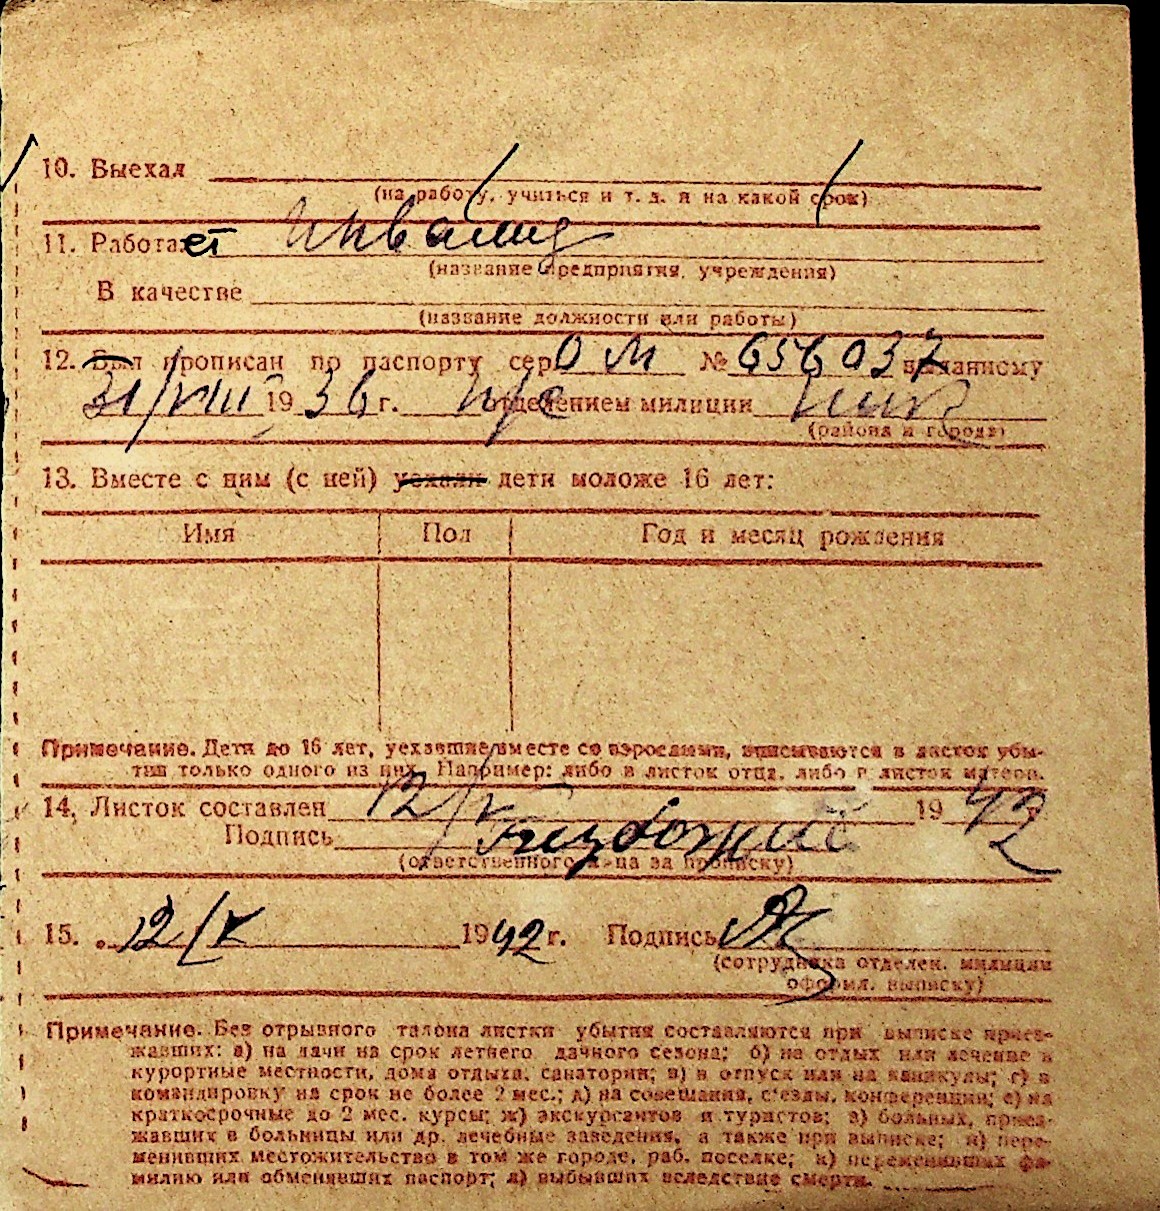 10. Выехал
(на работу, учиться и т. д. и на какой срок)
11. Работает Инвалид
(название предприятия, учреждения)
В качестве
(название должности или работы)
12. Был прописан по паспорту сер. ОМ № 656037 выданному
31/VIII 1936 г. отделением милиции
(района и города)
13. Вместе с ним (с ней) уехали дети моложе 16 лет:
Имя Пол Год и месяц рождения
Примечание. Дети до 16 лет, уехавшие вместе со взрослыми, вписываются в листок убы-
тия только одного из них. Например: либо в листок отца, либо в листок матери.
14. Листок составлен 12/V 1942
Подпись
(ответственного л-ца за прописку)
15. 12/V 1942 г. Подпись
(сотрудника отделен. милиции
оформл. выписку)
Примечание. Без отрывного талона листки убытия составляются при выписке приез-
жавших: а) на дачи на срок летнего дачного сезона; б) на отдых или лечение в
курортные местности, дома отдыха, санатории; в) в отпуск или на каникулы; г) в
командировку на срок не более 2 мес.; д) на совещания, съезды, конференции; е) на
краткосрочные до 2 мес. курсы; ж) экскурсантов и туристов; з) больных, приез-
жавших в больницы или др. лечебные заведения, а также при выписке; и) пере-
менивших местожительство в том же городе, раб. поселке; к) переменивших фа-
милию или обменявших паспорт; л) выбывших вследствие смерти.